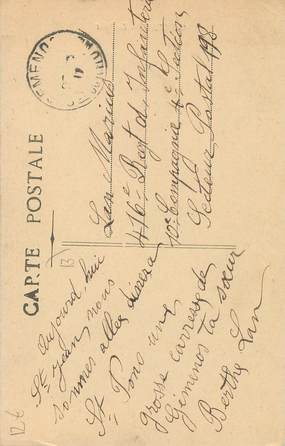 CARTE POSTALE
GEMENOS
Lan Marius
416e Regt d'Infanterie
10e Compagnie 4e Section
Secteur Postal 198
Aujourd'hui
St Jean nous
sommes allés diner a
St Pons une
grosse carresse de
Gimenos ta sœur
Berthe Lan
13
12€